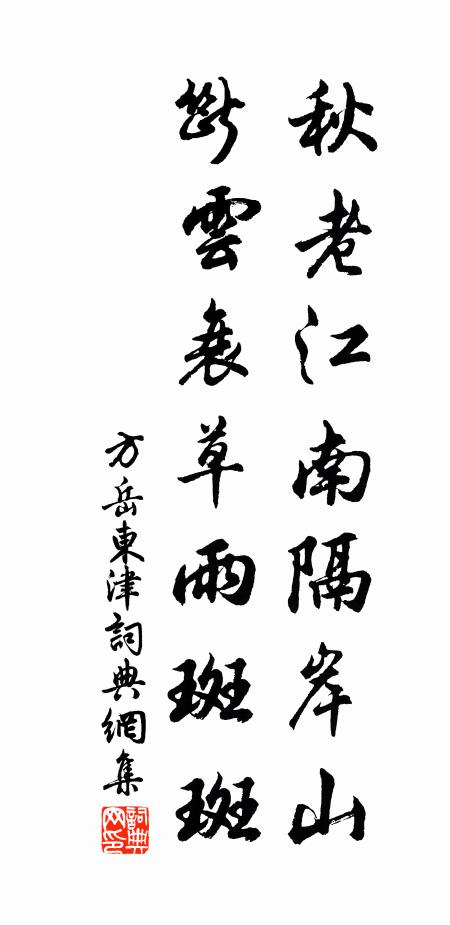 秋老江南隔岸山
斷雲衰草雨斑斑
方岳東津詞典網集
詞典网印